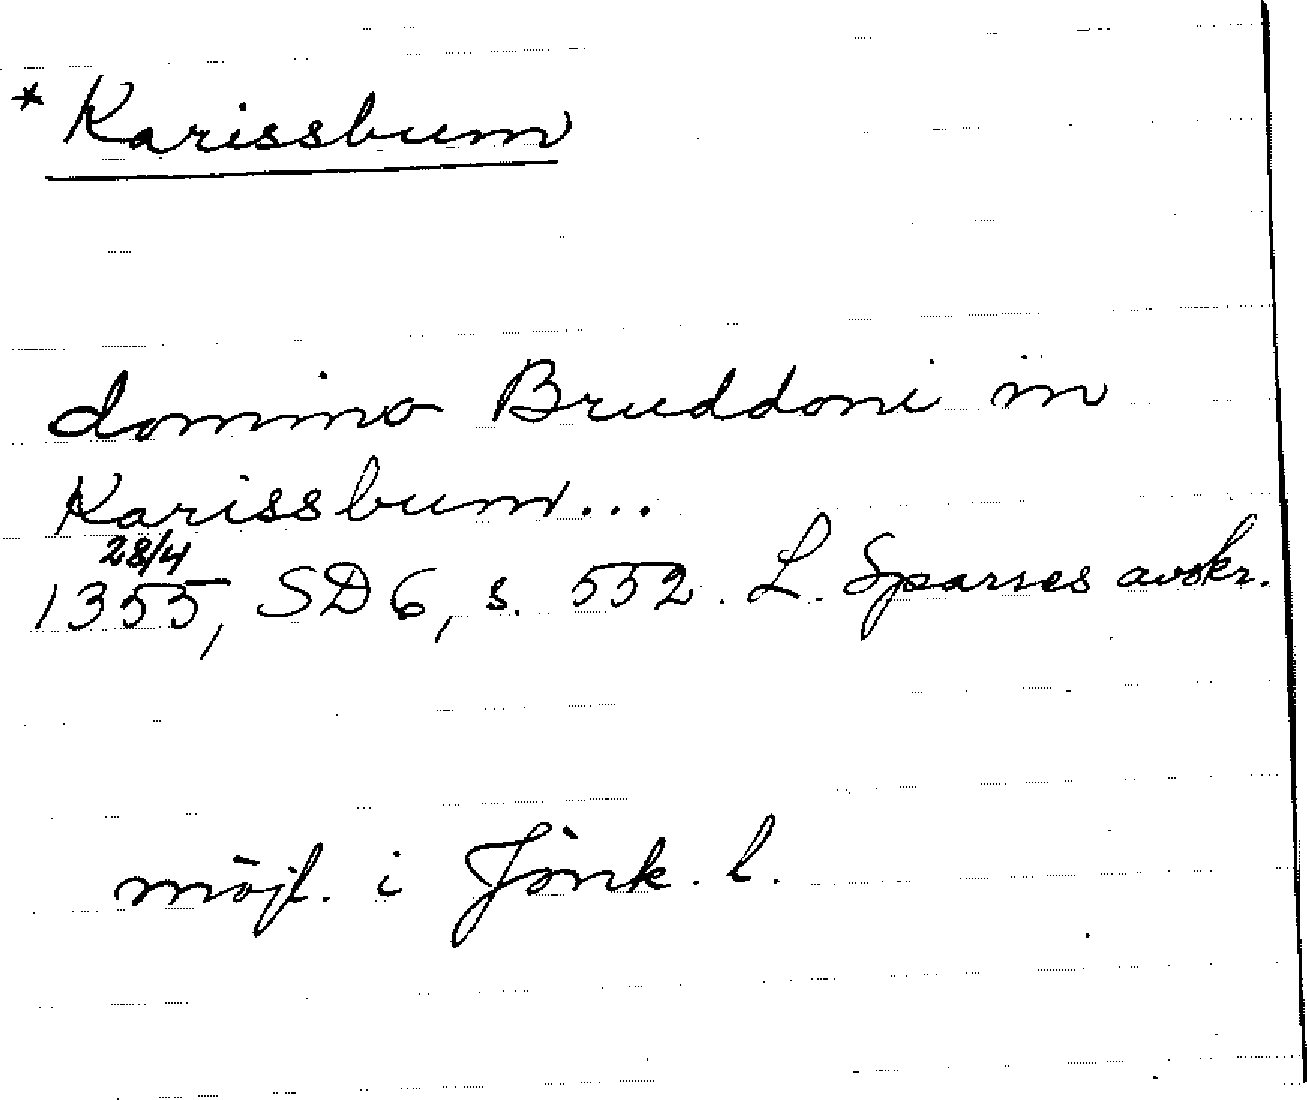 * Karissbum
domino Bruddoni in
Karissbum...
28/4
1355, SD 6, s. 552. L. Sparres avskr.
möjl. i Jönk. l.